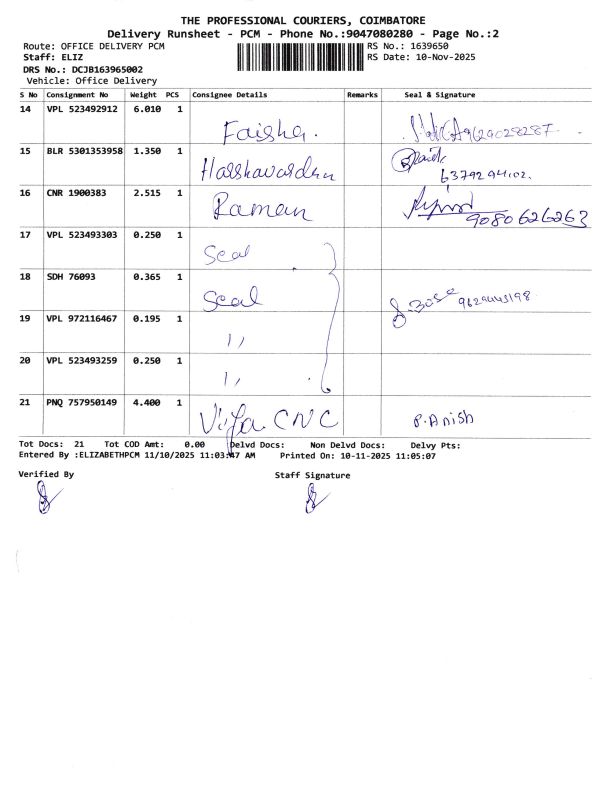 THE PROFESSIONAL COURIERS, COIMBATORE
Delivery Runsheet - PCM - Phone No.:9047080280 - Page No.:2
Route: OFFICE DELIVERY PCM RS No.: 1639650
Staff: ELIZ RS Date: 10-Nov-2025
DRS No.: DCJB163965002
Vehicle: Office Delivery
S No Consignment No Weight PCS Consignee Details Remarks Seal & Signature
14 VPL 523492912 6.010 1 Faisha. 9629028287
15 BLR 5301353958 1.350 1 Harshavardhn
6379294102.
16 CNR 1900383 2.515 1 Raman
9080626263
17 VPL 523493303 0.250 1 Seal
18 SDH 76093 0.365 1 Seal 9629443198
19 VPL 972116467 0.195 1 ,,
20 VPL 523493259 0.250 1 ,,
21 PNQ 757950149 4.400 1 CNC P.Anish
Tot Docs: 21 Tot COD Amt: 0.00 Delvd Docs: Non Delvd Docs: Delvy Pts:
Entered By :ELIZABETHPCM 11/10/2025 11:03:47 AM Printed On: 10-11-2025 11:05:07
Verified By Staff Signature